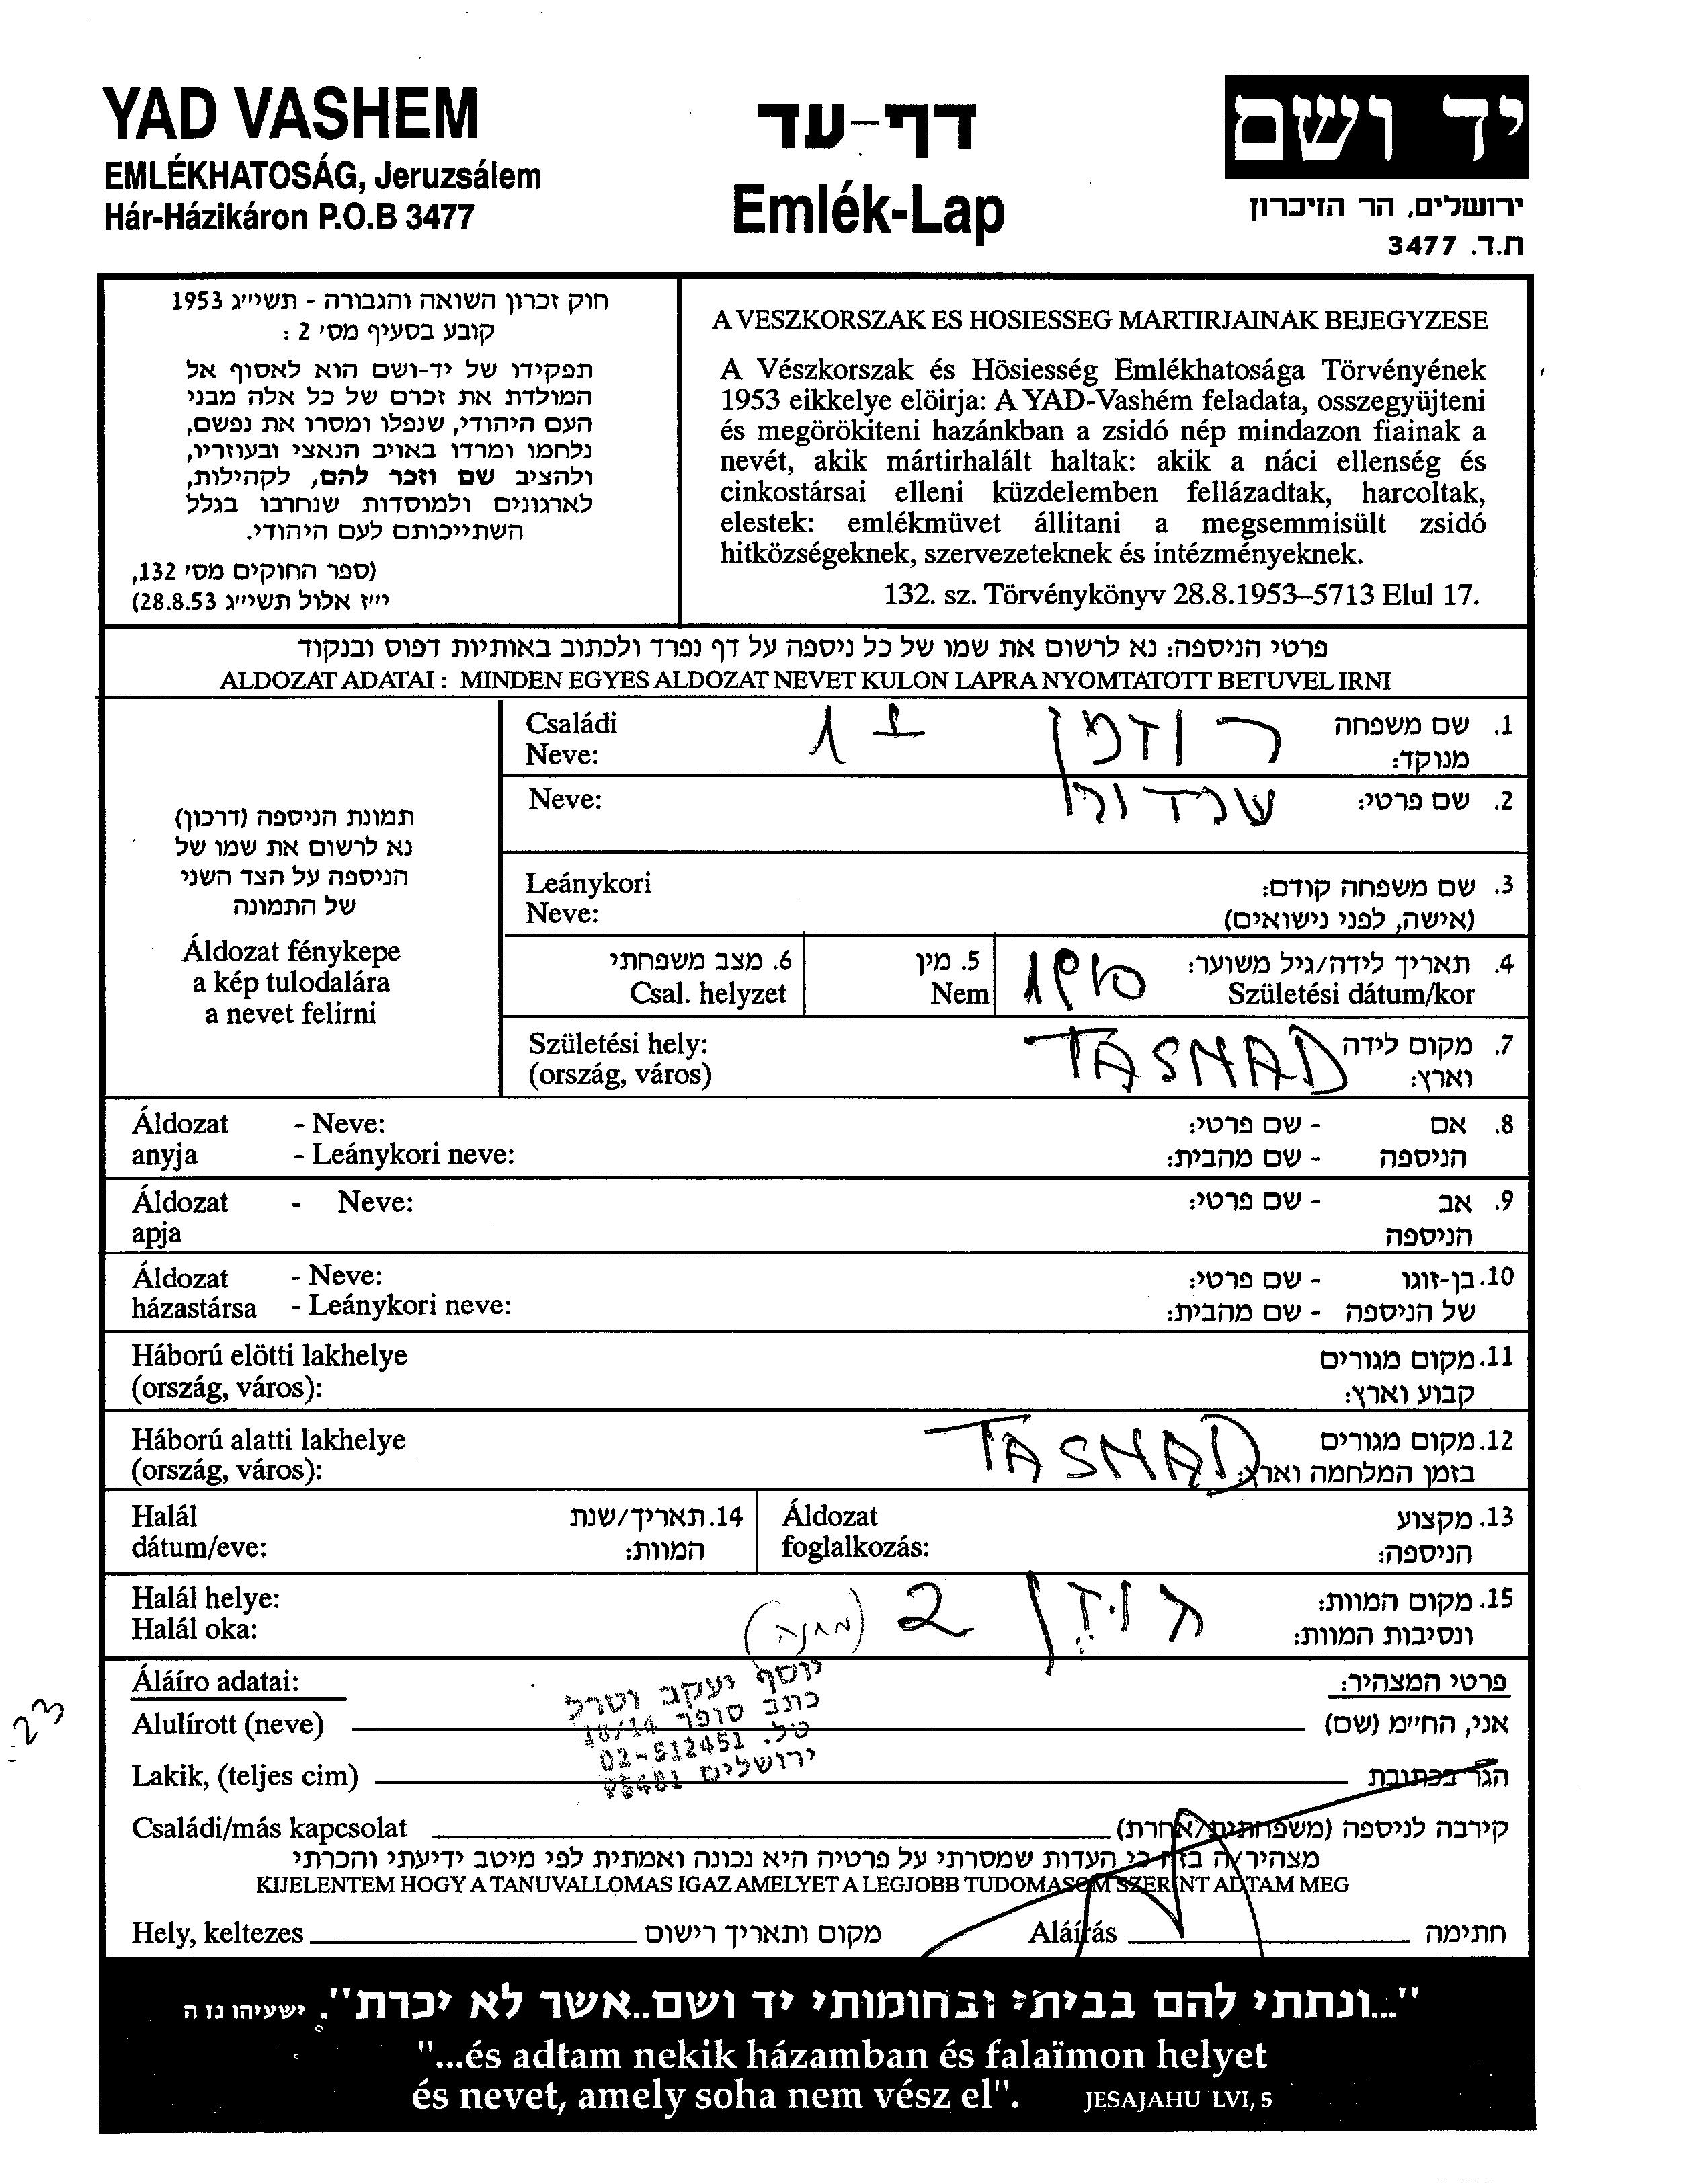 YAD VASHEM
EMLÉKHATOSÁG, Jeruzsálem
Hár-Házikáron P.O.B 3477
דף-עד
Emlék-Lap
יד ושם
ירושלים, הר הזיכרון
ת.ד. 3477
חוק זכרון השואה והגבורה - תשי״ג 1953
קובע בסעיף מס׳ 2 :
תפקידו של יד-ושם הוא לאסוף אל
המולדת את זכרם של כל אלה מבני
העם היהודי, שנפלו ומסרו את נפשם,
נלחמו ומרדו באויב הנאצי ובעוזריו,
ולהציב שם וזכר להם, לקהילות,
לארגונים ולמוסדות שנחרבו בגלל
השתייכותם לעם היהודי.
(ספר החוקים מס׳ 132,
י״ז אלול תשי״ג 28.8.53)
A VESZKORSZAK ES HOSIESSEG MARTIRJAINAK BEJEGYZESE
A Vészkorszak és Hösiesség Emlékhatosága Törvényének
1953 eikkelye elöirja: A YAD-Vashém feladata, osszegyüjteni
és megörökiteni hazánkban a zsidó nép mindazon fiainak a
nevét, akik mártirhalált haltak: akik a náci ellenség és
cinkostársai elleni küzdelemben fellázadtak, harcoltak,
elestek: emlékmüvet állitani a megsemmisült zsidó
hitközségeknek, szervezeteknek és intézményeknek.
132. sz. Törvénykönyv 28.8.1953–5713 Elul 17.
פרטי הניספה: נא לרשום את שמו של כל ניספה על דף נפרד ולכתוב באותיות דפוס ובנקוד
ALDOZAT ADATAI : MINDEN EGYES ALDOZAT NEVET KULON LAPRA NYOMTATOTT BETUVEL IRNI
תמונת הניספה (דרכון)
נא לרשום את שמו של
הניספה על הצד השני
של התמונה
Áldozat fénykepe
a kép tulodalára
a nevet felirni
1. שם משפחה
מנוקד:
רוזמן
Családi
Neve:
2. שם פרטי:
Neve:
3. שם משפחה קודם:
(אישה, לפני נישואים)
Leánykori
Neve:
4. תאריך לידה/גיל משוער:
Születési dátum/kor
1910
5. מין
Nem
6. מצב משפחתי
Csal. helyzet
7. מקום לידה
וארץ:
TASNAD
Születési hely:
(ország, város)
8. אם - שם פרטי:
הניספה - שם מהבית:
Áldozat - Neve:
anyja - Leánykori neve:
9. אב - שם פרטי:
הניספה
Áldozat - Neve:
apja
10. בן-זוגו - שם פרטי:
של הניספה - שם מהבית:
Áldozat - Neve:
házastársa - Leánykori neve:
11. מקום מגורים
קבוע וארץ:
Háború elötti lakhelye
(ország, város):
12. מקום מגורים
בזמן המלחמה וארץ:
TASNAD
Háború alatti lakhelye
(ország, város):
13. מקצוע
הניספה:
Áldozat
foglalkozás:
14. תאריך/שנת
המוות:
Halál
dátum/eve:
15. מקום המוות:
ונסיבות המוות:
2
Halál helye:
Halál oka:
פרטי המצהיר:
Áláíro adatai:
אני, הח״מ (שם)
Alulírott (neve)
הגר בכתובת
Lakik, (teljes cim)
יוסף יעקב וסרל
כתב סופר 18/14
טל. 02-512451
ירושלים 95481
23
קירבה לניספה (משפחתית/אחרת)
Családi/más kapcsolat
מצהיר/ה בזה כי העדות שמסרתי על פרטיה היא נכונה ואמתית לפי מיטב ידיעתי והכרתי
KIJELENTEM HOGY A TANUVALLOMAS IGAZ AMELYET A LEGJOBB TUDOMASOM SZERINT ADTAM MEG
Hely, keltezes מקום ותאריך רישום Aláírás חתימה
"...ונתתי להם בביתי ובחומותי יד ושם..אשר לא יכרת". ישעיהו נז ה
"...és adtam nekik házamban és falaïmon helyet
és nevet, amely soha nem vész el". JESAJAHU LVI, 5